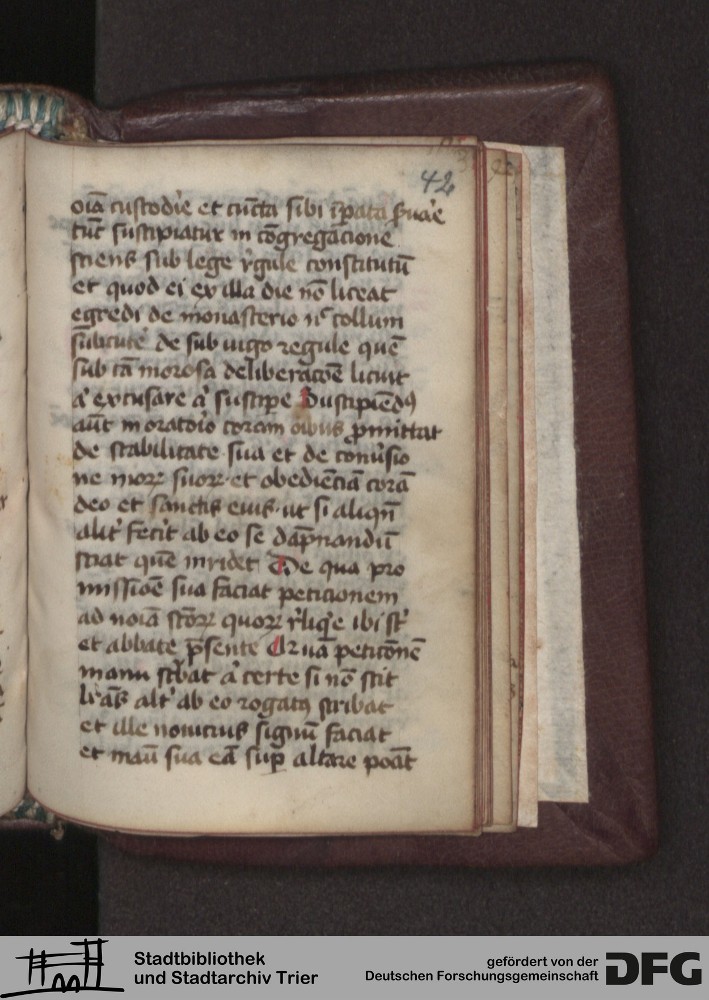 42
oīa custodiē et cūcta sibi īpata ẜuāe
tūc suscipiatur in cōgregacione
sciens sub lege rͥgule constitutū
et quod ei ex illa die nō liceat
egredi de monasterio nͨ collum
sub iugo regule quē
sub tā morosa deliberacōe licuit
aͭ excusare aͭ suscipe Suscipiēdꝰ
aūt in oratoͥo coram oībus ꝓmittat
de stabilitate sua et de conūsio
ne moꝝ suoꝝ et obediēciā corā
deo et sanctis eius ut si aliqn̄
alit᷑ fecͥt ab eo se dāpnandū
sciat quē irridet De qua pro
missiōe sua faciat peticionem
ad noīa sc̄oꝝ quoꝝ rͥliqͥe ibi st᷑
et abbate p̄sente Qͣr uā peticōnē
manu sc̄bat aͭ certe si nō scit
lr̄as alt᷑ ab eo rogatꝰ scribat
et ille nouicius signū faciat
et manū sua eā suꝑ altare poāt
Stadtbibliothek
und Stadtarchiv Trier
gefördert von der
Deutschen Forschungsgemeinschaft
DFG